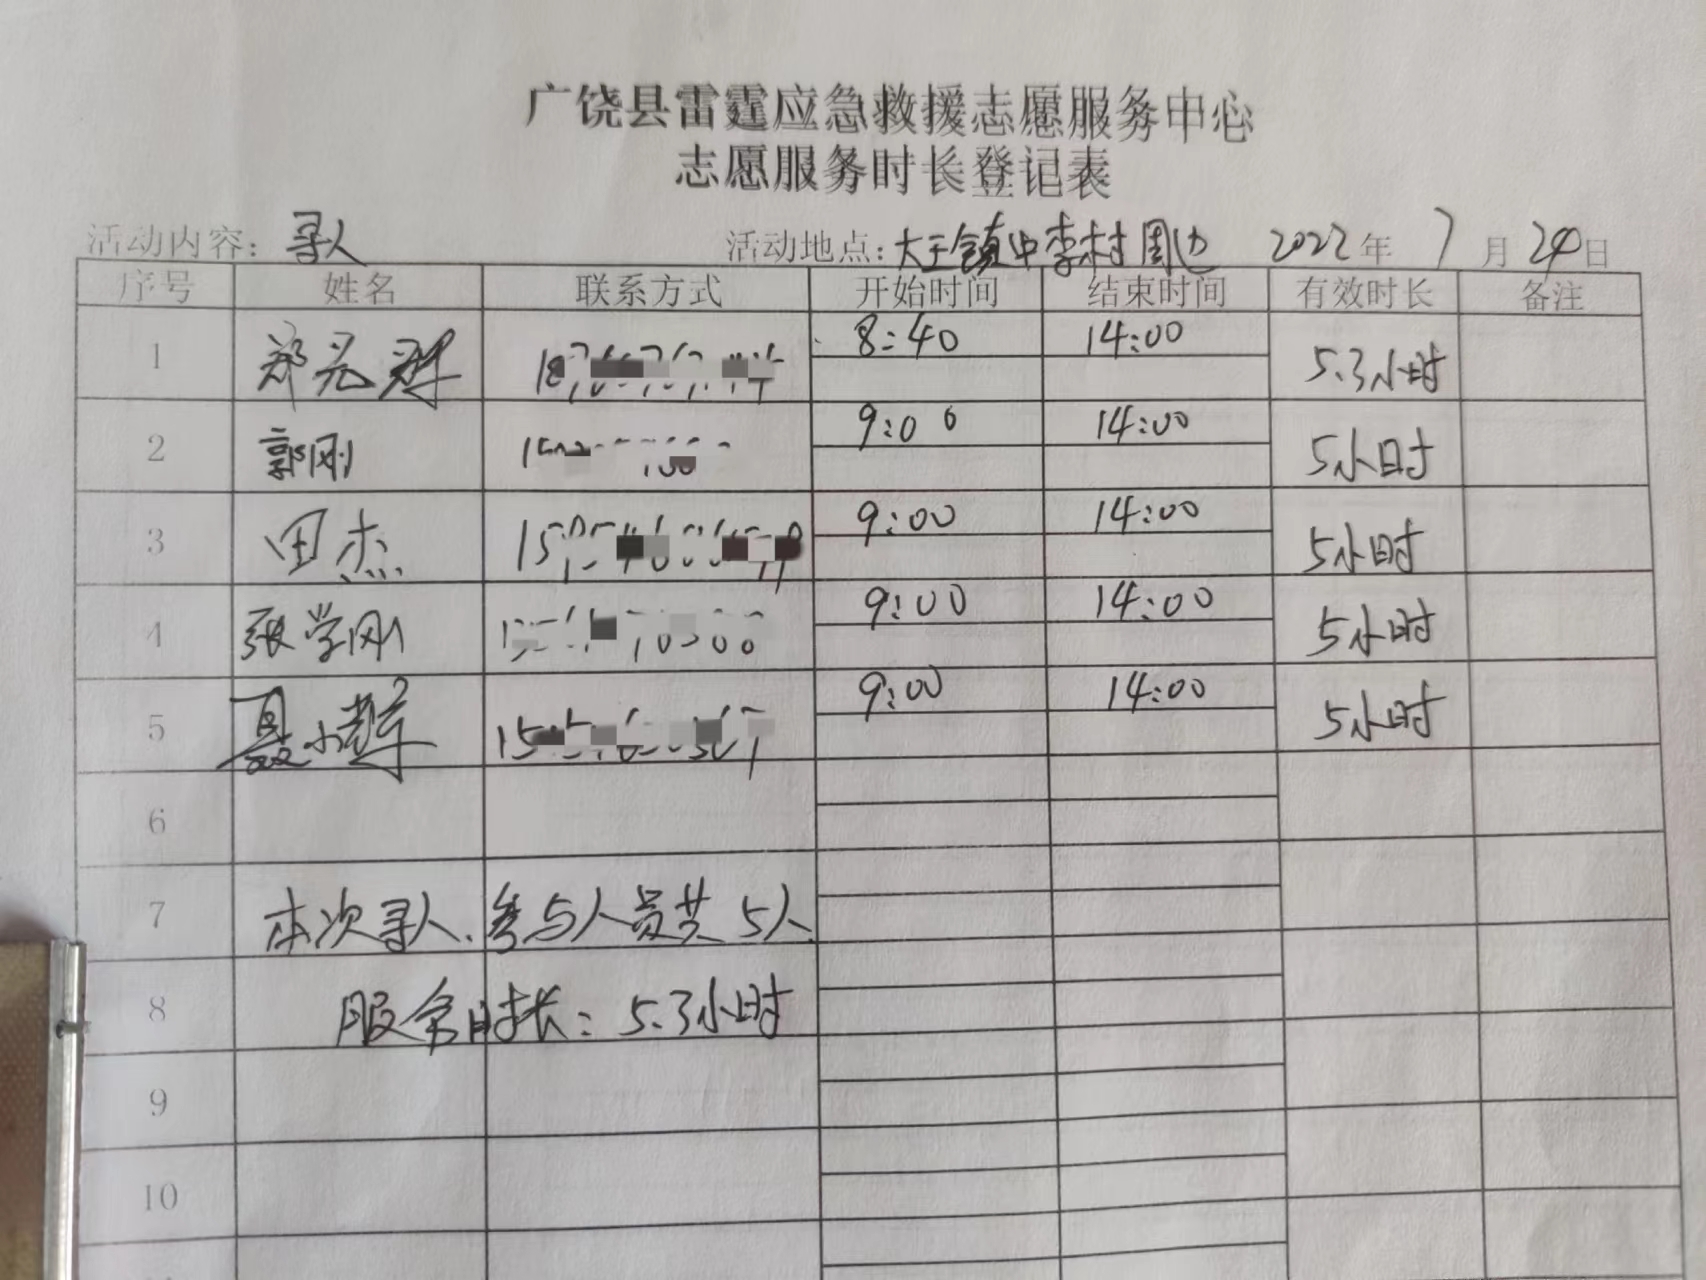 广饶县雷霆应急救援志愿服务中心
志愿服务时长登记表
活动内容：寻人 活动地点：大王镇中李村周边 2022年7月24日
序号 姓名 联系方式 开始时间 结束时间 有效时长 备注
1 郑 8:40 14:00 5.3小时
2 郭刚 9:00 14:00 5小时
3 田杰 9:00 14:00 5小时
4 张学刚 9:00 14:00 5小时
5 聂小 9:00 14:00 5小时
6
7 本次寻人、参与人员共5人、
8 服务时长：5.3小时
9
10